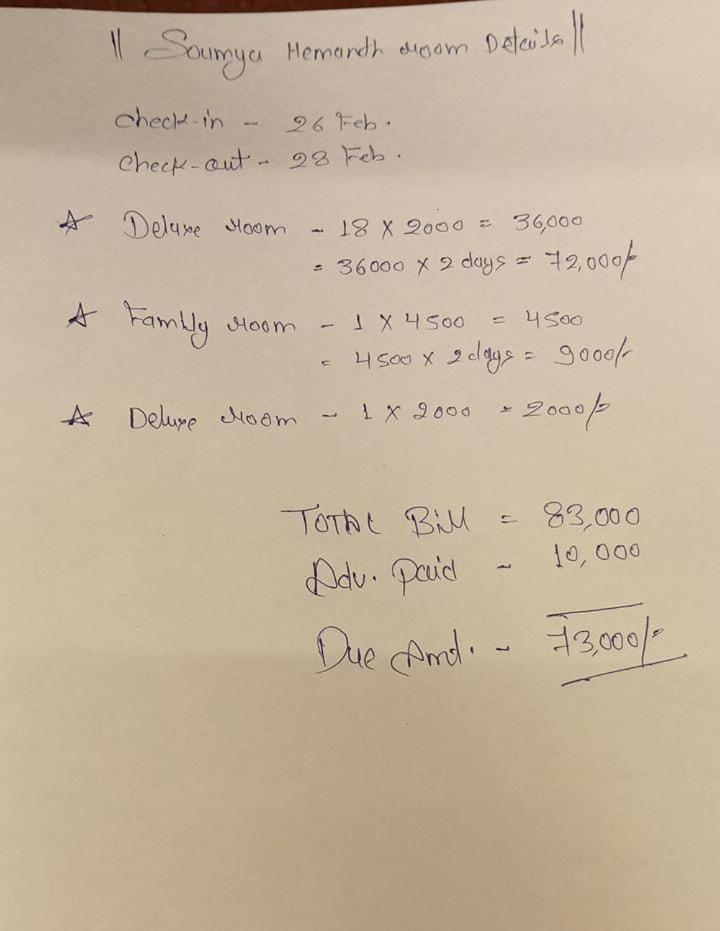 || Soumya Hemandh room Details ||
Check-in - 26 Feb.
Check-out - 28 Feb.
☆ Deluxe room - 18 X 2000 = 36,000
= 36000 X 2 days = 72,000/-
☆ Family room - 1 X 4500 = 4500
= 4500 X 2 days = 9000/-
☆ Deluxe room - 1 X 2000 = 2000/-
TOTAL Bill = 83,000
Adv. Paid - 10,000
Due Amd. - 73,000/-